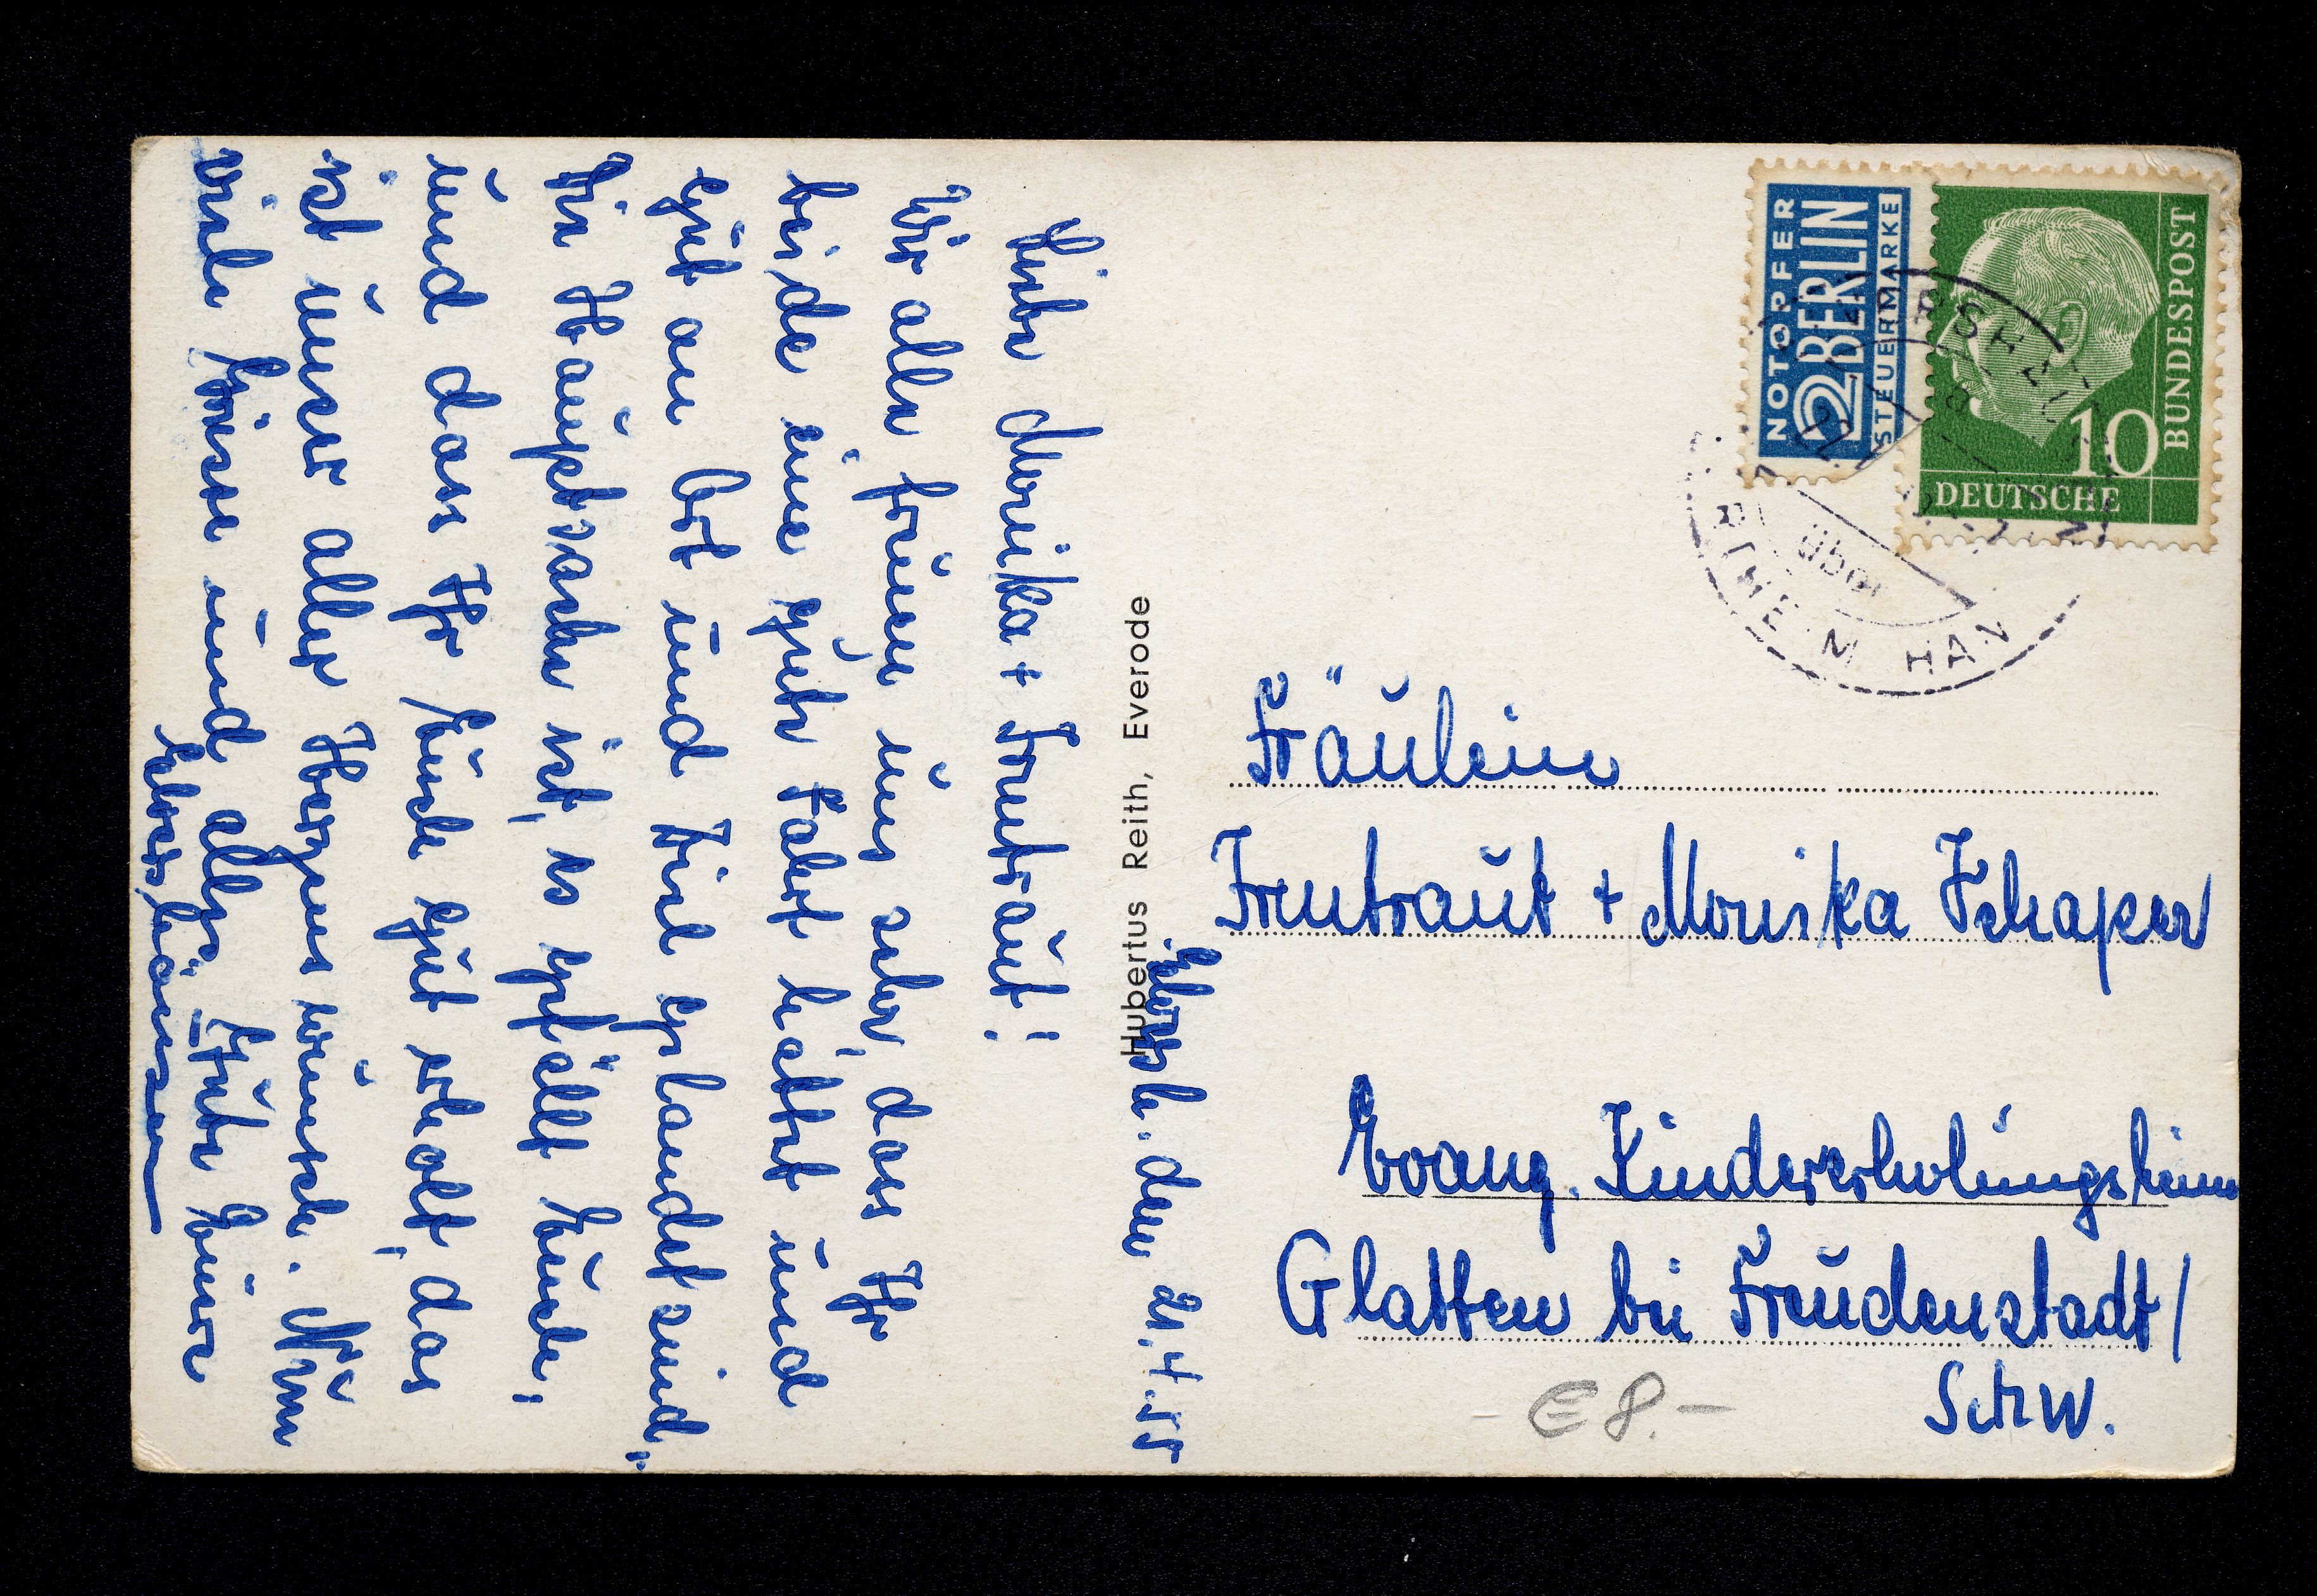 Ebersh. den 21.4.55
Liebe Monika + Irmtraut!
Wir alle freuen uns sehr, dass Ihr
beide eine gute Fahrt hattet und
gut am Ort und Ziel gelandet seind.
Die Hauptsache ist, es gefällt Euch,
und dass Ihr Euch gut erholt, das
ist unser aller Herzens wunsch. Nun
viele Grüsse und alles Gute Eurer
Hubertus Reith, Everode
NOTOPFER
2 BERLIN
STEUERMARKE
10
DEUTSCHE
BUNDESPOST
über
HAN
Fräulein
Irmtraut + Monika Schaper
Evang. Kindererholungsheim
Glatten bei Freudenstadt/
Schw.
€ 8.-